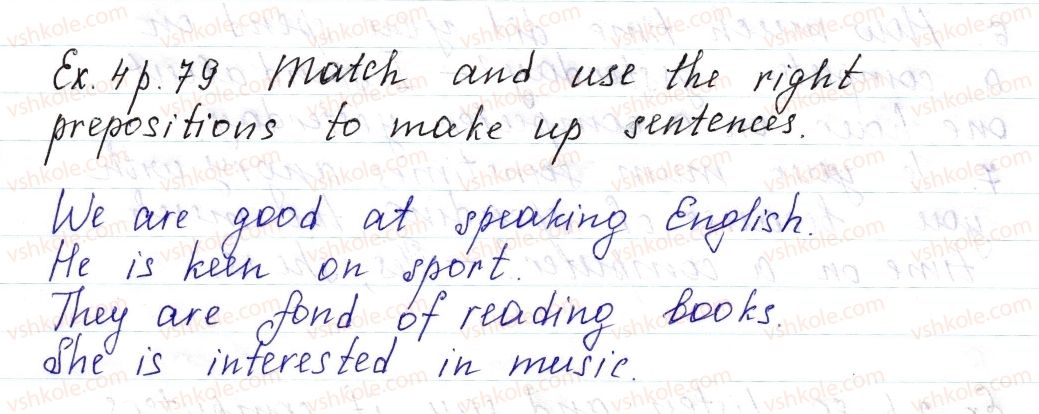 Ex. 4 p. 79 Match and use the right
prepositions to make up sentences.
We are good at speaking English.
He is keen on sport.
They are fond of reading books.
She is interested in music.
vshkole.com